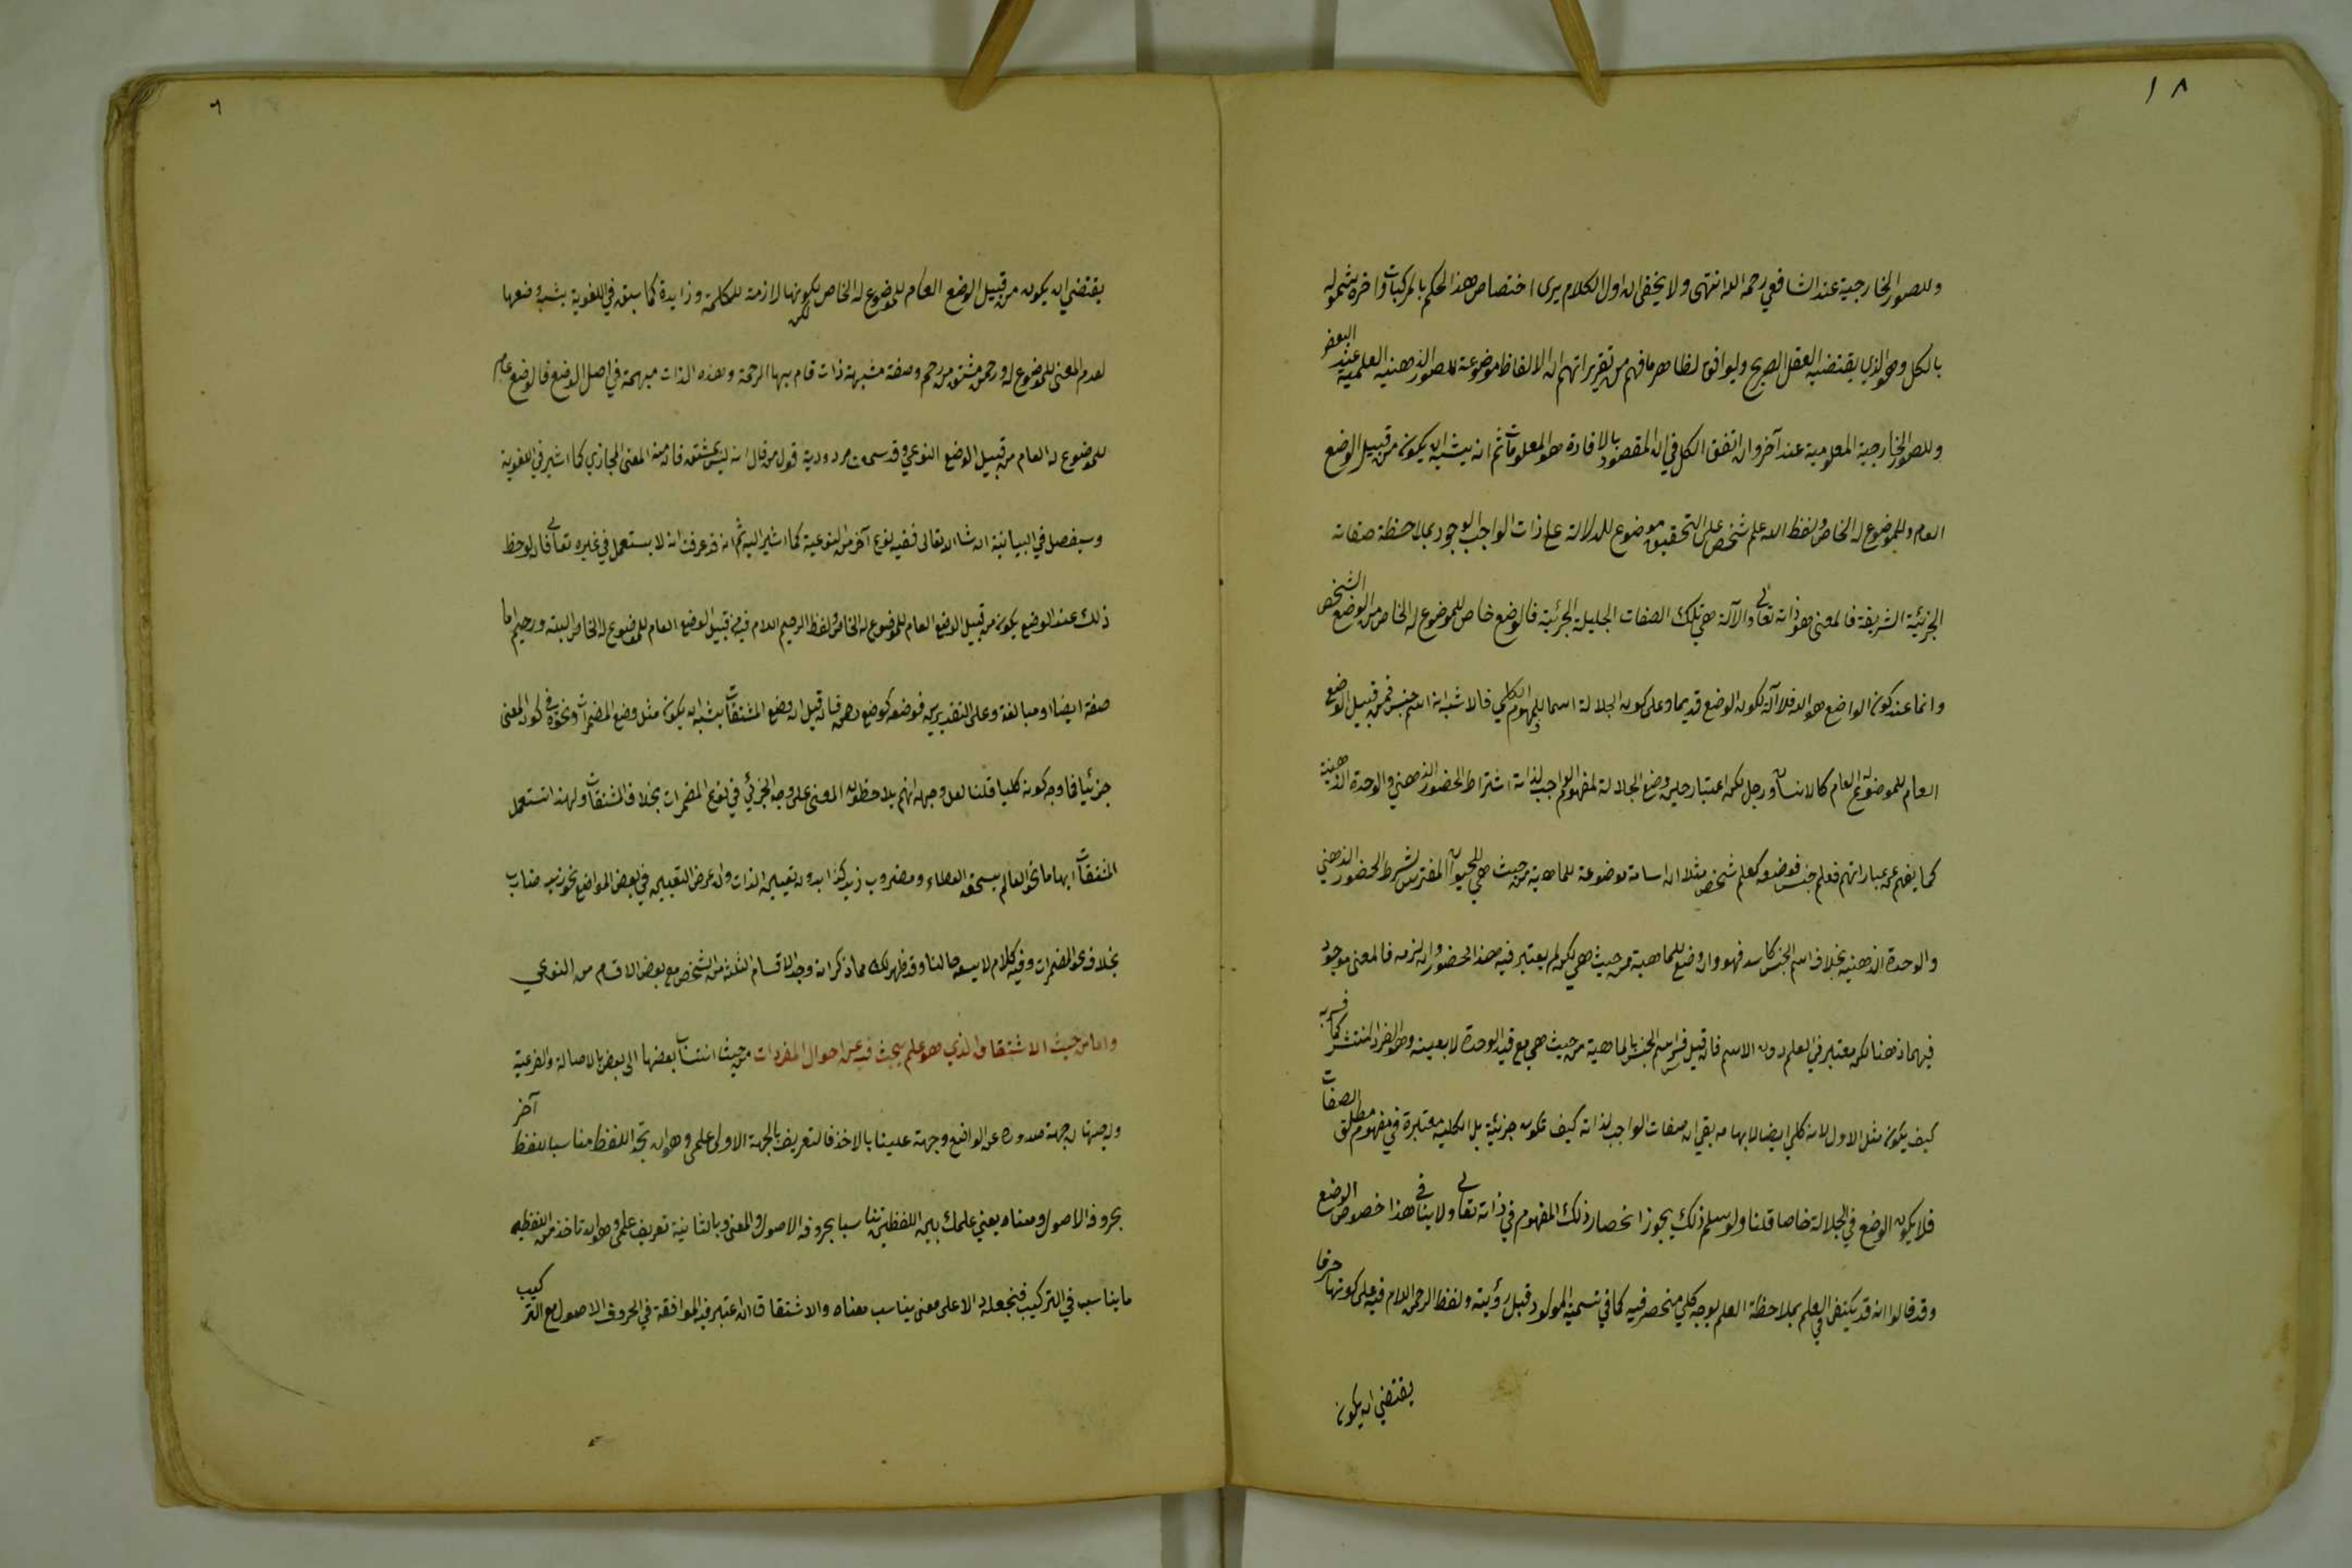 ١٨
وللصور الخارجية عند الشافعي رحمه الله انتهى ولا يخفى ان اول الكلام يرى اختصاص هذا الحكم بالمركبات واخره شموله
بالكل وهو الذي يقتضيه العقل الصريح وليوافق لظاهر ما فهم من تقريراتهم ان الالفاظ موضوعة للصور الذهنية العلمية عند البعض
وللصور الخارجية المعلومية عند آخر وان اتفق الكل في ان المقصود بالافادة هو المعلومات ثم انه يشبه ان يكون من قبيل الوضع
العام وللموضوع له الخاص ولفظ الله علم شخص على التحقيق موضوع للدلالة على ذات الواجب الوجود بملاحظة صفاته
الجزئية الشريفة فالمعنى هو ذاته تعالى والآلة هي تلك الصفات الجليلة الجزئية فالوضع خاص للموضوع له الخاص من الوضع الشخص
وانما عند كون الواضع هو الله فلا آلة لكون الوضع قديما وعلى كون الجلالة اسما للمفهوم الكلي فالاشبه انه اسم جنس فمن قبيل الوضع
العام للموضوع له العام كالانسان ورجل لكن اعتبار حين وضع الجلالة لمفهوم الواجب لذاته اشتراط الحضور الذهني والوحدة الذهنية
كما يفهم عن عباراتهم فعلم جنس فوضعه كعلم شخص مثلا ان اسامة موضوعة للماهية من حيث هي للحيوان المفترس بشرط الحضور الذهني
والوحدة الذهنية بخلاف اسم الجنس كاسد فهو وان وضع للماهية من حيث هي لكن لم يعتبر فيه هذا الحضور وان لزمه فالمعنى موجود
فيهما ذهنا لكن معتبر في العلم دون الاسم فان قيل فسر اسم الجنس بالماهية من حيث هي مع قيد الوحدة لا بعينه وهو الفرد المنتشر كما فسر به
كيف يكون مثل الاول لانه كلي ايضا لابهامه بقي ان صفات الواجب لذاته كيف تكون جزئية بل الكلية معتبرة في مفهوم مطلق الصفات
فلا يكون الوضع في الجلالة خاصا قلنا ولو سلم ذلك يجوز انحصار ذلك المفهوم في ذاته تعالى ولا ينافي هذا خصوص الوضع
وقد قالوا انه قد يكتفى في العلم بملاحظة العلم بوجه كلي منحصر فيه كما في تسمية المولود قبل رؤيته ولفظ الرحمن اللام فيه على كونها حرفا
يقتضي ان يكون
٦
يقتضي ان يكون من قبيل الوضع العام للموضوع له الخاص لكن كونها لازمة للكلمة وزايدة كما سبق في اللغوية يشبه وضعها
لعدم المعنى للموضوع له ورحمن مشتق من رحم وصفة مشبهة ذات قام بها الرحمة وهذه الذات مبهمة في اصل الوضع فالوضع عام
للموضوع له العام من قبيل الوضع النوعي وقد سمعت مردودية قول من قال انه ليس بمشتق فانه منه المعنى المجازي كما اشير في اللغوية
وسيفصل في البيانية ان شاء الله تعالى ففيه نوع آخر من النوعية كما اشير اليه ثم انه قد عرفت انه لا يستعمل في غيره تعالى فان لوحظ
ذلك عند الوضع يكون من قبيل الوضع العام للموضوع له الخاص ولفظ الرحيم اللام فيه من قبيل الوضع العام للموضوع له الخاص البته ورحيم اما
صفة ايضا او مبالغة وعلى التقديرين فوضعه كوضع رحمن فان قيل ان وضع المشتقات يشبه ان يكون مثل وضع المضمرات ونحوه في كون المعنى
جزئيا فما وجه كونه كليا قلنا لعل وجهه انهم يلاحظون المعنى على وجه الجزئي في نوع المضمرات بخلاف المشتقات ولهذا تستعمل
المشتقات ابهاما نحو العالم يستحق العطاء ومضروب زيد كذا بدون تعيين الذات وان عرض التعيين في بعض المواضع نحو زيد ضارب
بخلاف نحو المضمرات وفيه كلام لا يسعه حالنا وقد ظهر لك مما ذكر انه وجد الاقسام الثلثة من الشخص مع بعض الاقسام من النوعي
واما من حيث الاشتقاق الذي هو علم يبحث فيه عن احوال المفردات من حيث انتساب بعضها الى بعض بالاصالة والفرعية
وله جهتان جهة صدوره عن الواضع وجهة علينا بالاخذ فالتعريف بالجهة الاولى علمي وهو ان تجد اللفظ مناسبا للفظ آخر
بحروفه الاصول ومعناه يعني علمك بين اللفظين تناسبا بحروفه الاصول والمعنى وبالثانية تعريف عملي وهو ان تأخذ من اللفظ
ما يناسبه في التركيب فتجعله دالا على معنى يناسب معناه والاشتقاق ان اعتبر فيه الموافقة في الحروف الاصول مع الترتيب